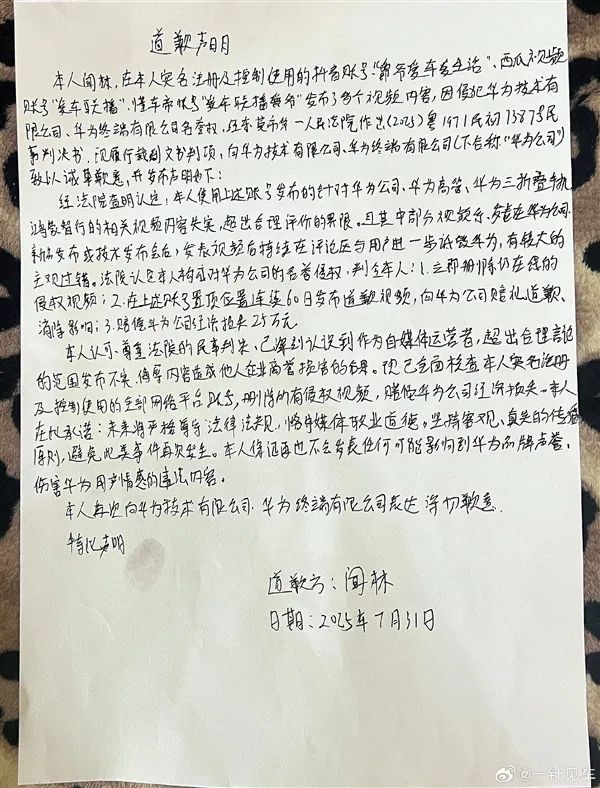 道歉声明
本人闻林，在本人实名注册及控制使用的抖音账号"爱车爱生活"、西瓜视频
账号"爱车联播"、懂车帝账号"爱车联播"发布了多个视频内容，因侵犯华为技术有
限公司、华为终端有限公司名誉权，经东莞市第一人民法院作出(2025)粤1971民初13875号民
事判决书。现履行裁判文书判项，向华为技术有限公司、华为终端有限公司(下合称"华为公司")
致以诚挚歉意，并发布声明如下：
经法院查明认定，本人使用上述账号发布的针对华为公司、华为高管、华为三折叠手机、
鸿蒙智行的相关视频内容失实，超出合理评价的界限。且其中部分视频系专门在华为公司
新品发布或技术发布会后，发表视频后持续在评论区与用户进一步诋毁华为，有较大的
主观过错。法院认定本人构成对华为公司的名誉侵权，判令本人：1.立即删除仍在线的
侵权视频；2.在上述账号置顶位置连续60日发布道歉视频，向华为公司赔礼道歉、
消除影响；3.赔偿华为公司经济损失25万元。
本人认可、尊重法院的民事判决，已深刻认识到作为自媒体运营者，超出合理言论
的范围发布不实、侮辱内容造成他人企业商誉损害的后果。现已全面核查本人实名注册
及控制使用的全部网络平台账号，删除所有侵权视频，赔偿华为公司经济损失。本人
在此承诺：未来将严格遵守法律法规，恪守媒体职业道德。坚持客观、真实的传播
原则，避免此类事件再次发生。本人保证再也不会发表任何可能影响到华为品牌声誉、
伤害华为用户情感的违法内容。
本人再次向华为技术有限公司、华为终端有限公司表达深切歉意。
特此声明
道歉方：闻林
日期：2025年7月31日
@一针见车